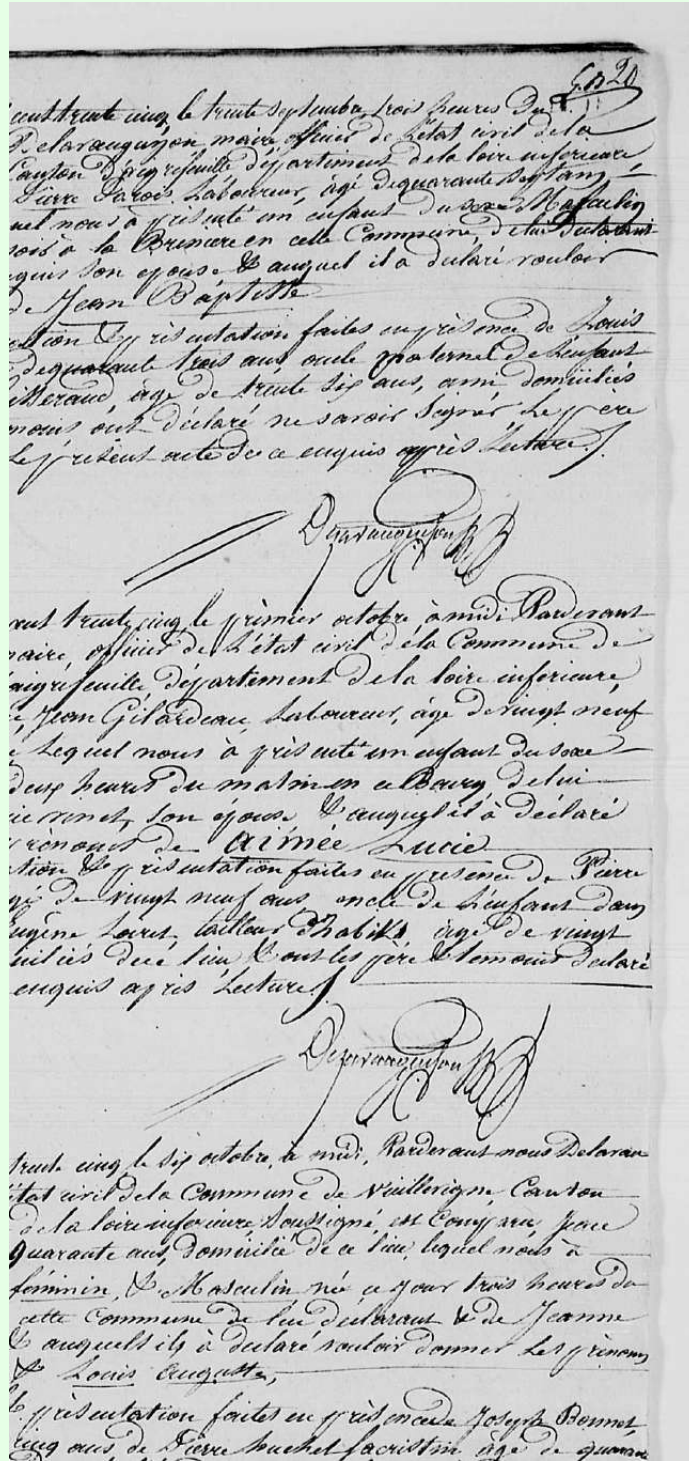 cent trente cinq, le trente septembre trois heures du
Delarauguyon, maire, officier de L'état civil de la
Canton D'aigrefeuille, département de la loire inférieure,
Pierre Laboureur, âgé de quarante sept ans
quel nous à présenté un enfant du sexe Masculin
à la en cette Commune, de lui Déclarant
son épouse & auquel il a déclaré vouloir
de Jean Baptiste
& présentation faites en présence de Louis
de quarante trois ans, oncle paternel de L'enfant
âgé de trente six ans, ami domiciliés
ont déclaré ne savoir Signer Le père
Le présent acte de ce enquis après Lecture ./.
Delarauguyon
cent trente cinq le prèmier octobre à midi, Pardevant
maire, officier de L'état civil de la Commune de
aigrefeuille, département de la loire inférieure,
Jean Gilardeau, Laboureur, âgé de vingt neuf
Lequel nous à présenté un enfant du sexe
deux heures du matin en ce Bourg, de lui
vinet, son épouse & auquel il à déclaré
prénoms de Aimée Lucie
& présentation faites en présence de Pierre
de vingt neuf ans oncle de L'enfant dans
Eugène Loret, tailleur d'habits âgé de vingt
de ce lieu & ont les père & témoins déclaré
enquis après Lecture ./.
Delarauguyon
trente cinq le six octobre, à midi, Pardevant nous Delarau
état civil de la Commune de Vieillevigne, Canton
de la loire inférieure, Soussigné, est Comparu, Jean
Quarante ans, Domicilié de ce lieu, lequel nous à
féminin, & Masculin née ce jour trois heures du
cette Commune de lui déclarant & de Jeanne
& auquels ils à déclaré vouloir donner Les prénoms
& Louis Auguste,
& présentation faites en présence de Joseph Bonnet,
cinq ans de Pierre huchet sacristin âgé de quarante